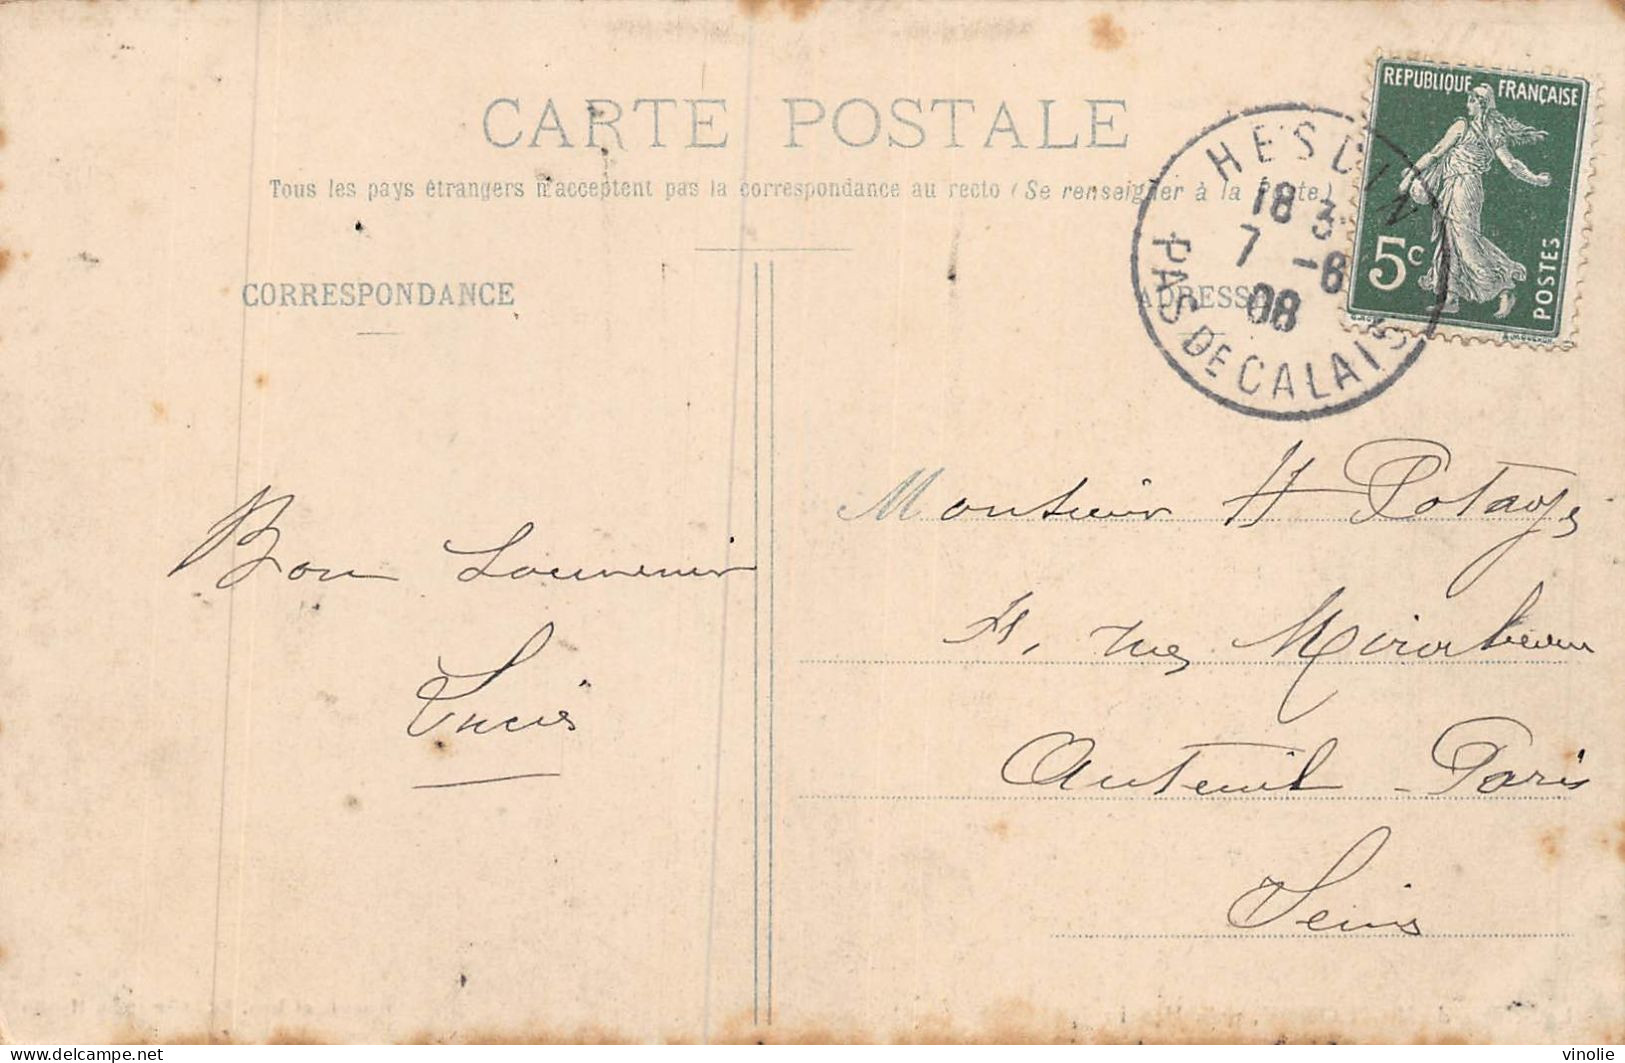 CARTE POSTALE
Tous les pays étrangers n'acceptent pas la correspondance au recto (Se renseigner à la Poste)
REPUBLIQUE FRANÇAISE
5c
POSTES
HESDIN
18 3
7 -6
08
PAS DE CALAIS
CORRESPONDANCE
ADRESSE
Bon Souvenir
Monsieur H Potaye
rue Mirabeau
Auteuil - Paris
Seine
delcampe.net
vinolie